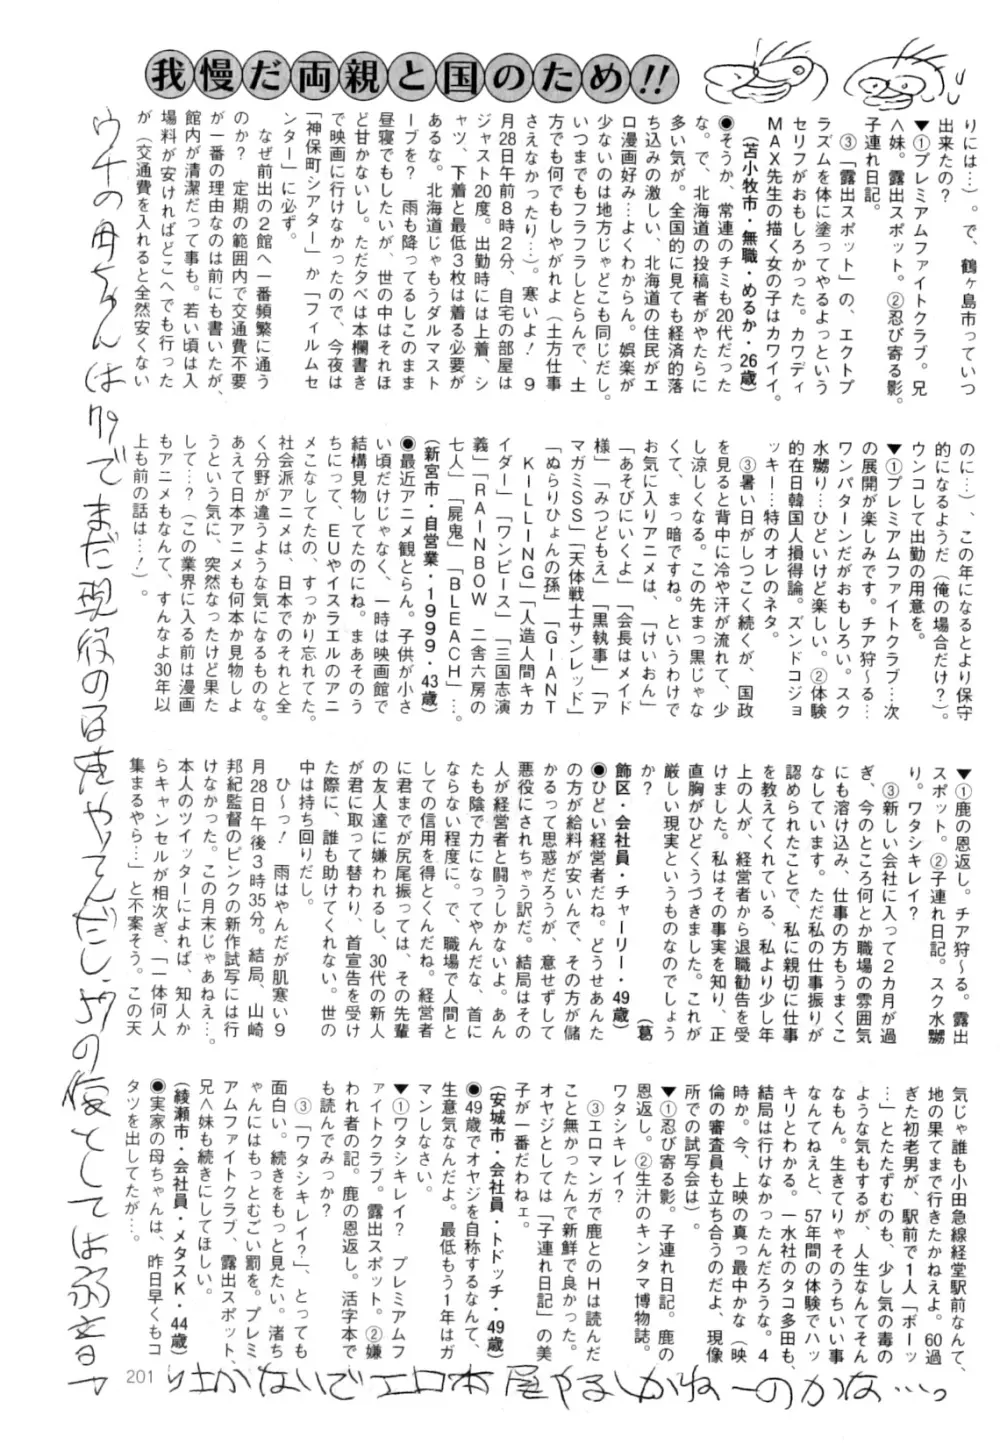 我慢だ両親と国のため!!
りには…)。で、鶴ヶ島市っていつ
出来たの?
▼①プレミアムファイトクラブ。兄
〈妹。露出スポット。②忍び寄る影。
子連れ日記。
③「露出スポット」の、エクトプ
ラズムを体に塗ってやるよっという
セリフがおもしろかった。カワディ
MAX先生の描く女の子はカワイイ。
(苫小牧市・無職・めるか・26歳)
●そうか、常連のチミも20代だった
な。で、北海道の投稿者がやたらに
多い気が。全国的に見ても経済的落
ち込みの激しい、北海道の住民がエ
ロ漫画好み…よくわからん。娯楽が
少ないのは地方じゃどこも同じだし。
いつまでもフラフラしとらんで、土
方でも何でもしやがれ(土方仕事
さえなかったり…)。寒いよ! 9
月28日午前8時2分、自宅の部屋は
ジャスト20度。出勤時には上着、シ
ャツ、下着と最低3枚は着る必要が
あるな。北海道じゃもうダルマスト
ーブを? 雨も降ってるしこのまま
昼寝でもしたいが、世の中はそれほ
ど甘かないし。ただ夕べは本欄書き
で映画に行けなかったので、今夜は
「神保町シアター」か「フィルムセ
ンター」に必ず。
なぜ前出の2館へ一番頻繁に通う
のか? 定期の範囲内で交通費不要
が一番の理由なのは前にも書いたが、
館内が清潔だって事も。若い頃は入
場料が安ければどこへでも行った
が(交通費を入れると全然安くない
のに…)、この年になるとより保守
的になるようだ(俺の場合だけ?)。
ウンコして出勤の用意を。
▼①プレミアムファイトクラブ…次
の展開が楽しみです。チア狩〜る…
ワンパターンだがおもしろい。スク
水嬲り…ひどいけど楽しい。②体験
的在日韓国人損得論。ズンドコジョ
ッキー…特のオレのネタ。
③暑い日がしつこく続くが、国政
を見ると背中に冷や汗が流れて、少
し涼しくなる。この先まっ黒じゃな
くて、まっ暗ですね。というわけで
お気に入りアニメは、「けいおん」
「あそびにいくよ」「会長はメイド
様」「みつどもえ」「黒執事」「ア
マガミSS」「天体戦士サンレッド」
「ぬらりひょんの孫」「GIANT
KILLING」「人造人間キカ
イダー」「ワンピース」「三国志演
義」「RAINBOW 二舎六房の
七人」「屍鬼」「BLEACH」…。
(新宮市・自営業・1999・43歳)
●最近アニメ観とらん。子供が小さ
い頃だけじゃなく、一時は映画館で
結構見物してたのにね。まあそのう
ちにって、EUやイスラエルのアニ
メこなしてたの、すっかり忘れてた。
社会派アニメは、日本でのそれと全
く分野が違うような気になるものな。
あえて日本アニメも何本か見物しよ
うという気に、突然なったけど果た
して…?(この業界に入る前は漫画
もアニメもなんて、すんなよ30年以
上も前の話は…!)。
▼①鹿の恩返し。チア狩〜る。露出
スポット。②子連れ日記。スク水嬲
り。ワタシキレイ?
③新しい会社に入って2カ月が過
ぎ、今のところ何とか職場の雰囲気
にも溶け込み、仕事の方もうまくこ
なしています。ただ私の仕事振りが
認められたことで、私に親切に仕事
を教えてくれている、私より少し年
上の人が、経営者から退職勧告を受
けました。私はその事実を知り、正
直胸がひどくうづきました。これが
厳しい現実というものなのでしょう
か? (葛
飾区・会社員・チャーリー・49歳)
●ひどい経営者だね。どうせあんた
の方が給料が安いんで、その方が儲
かるって思惑だろうが、意せずして
悪役にされちゃう訳だ。結局はその
人が経営者と闘うしかないよ。あん
たも陰で力になってやんだな、首に
ならない程度に。で、職場で人間と
しての信用を得とくんだね。経営者
に君までが尻尾振っては、その先輩
の友人達に嫌われるし、30代の新人
が君に取って替わり、首宣告を受け
た際に、誰も助けてくれない。世の
中は持ち回りだし。
ひ〜っ! 雨はやんだが肌寒い9
月28日午後3時35分。結局、山崎
邦紀監督のピンクの新作試写には行
けなかった。この月末じゃあねえ…。
本人のツイッターによれば、知人か
らキャンセルが相次ぎ、「一体何人
集まるやら…」と不案そう。この天
気じゃ誰も小田急線経堂駅前なんて、
地の果てまで行きたかねえよ。60過
ぎた初老男が、駅前で1人「ボーッ
…」とたたずむのも、少し気の毒の
ような気もするが、人生なんてそん
なもん。生きてりゃそのうちいい事
なんてねえと、57年間の体験でハッ
キリとわかる。一水社のタコ多田も、
結局は行けなかったんだろうな。4
時か。今、上映の真っ最中かな(映
倫の審査員も立ち合うのだよ、現像
所での試写会は)。
▼①忍び寄る影。子連れ日記。鹿の
恩返し。②生汁のキンタマ博物誌。
ワタシキレイ?
③エロマンガで鹿とのHは読んだ
こと無かったんで新鮮で良かった。
オヤジとしては「子連れ日記」の美
子が一番だわねェ。
(安城市・会社員・トドッチ・49歳)
●49歳でオヤジを自称するなんてな、
生意気なんだよ。最低もう1年はガ
マンしなさい。
▼①ワタシキレイ? プレミアムフ
ァイトクラブ。露出スポット。②嫌
われ者の記。鹿の恩返し。活字本で
も読んでみっか?
③「ワタシキレイ?」、とっても
面白い。続きをもっと見たい。渚ち
ゃんにはもっとむごい罰を。プレミ
アムファイトクラブ、露出スポット、
兄〈妹も続きにしてほしい。
(綾瀬市・会社員・メタスK・44歳)
●実家の母ちゃんは、昨日早くもコ
タツを出してたが…。
ウチの母ちゃんは79でまだ現役の百姓やってんだし、57の俺としては弱音
はかないでエロ本屋やるしかねーのかな…っ
201